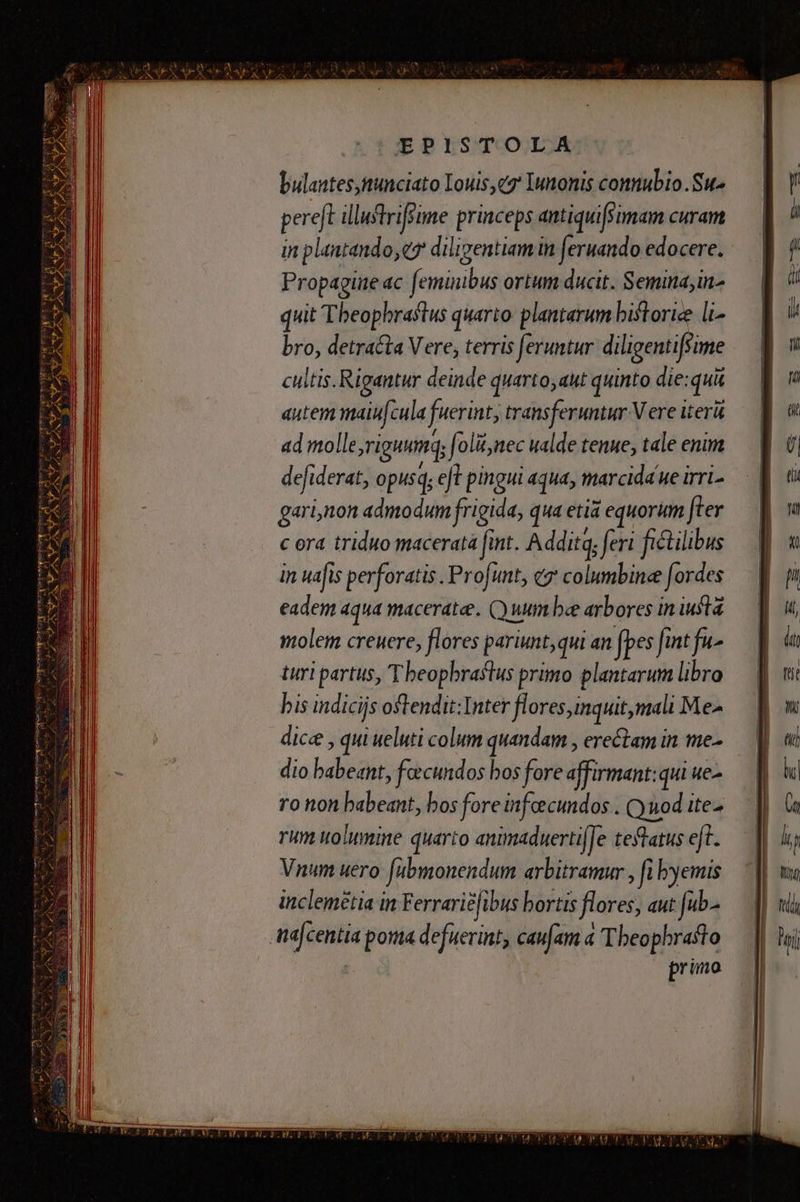 EPISTOLA
bulantes,nunciato Iouis,& Iunonis connubio.Su-
pereſt illuſtriſsime princeps antiquiſsimam curam
in plantando,& diligentiam in ſeruando edocere.
Propagine ac ſeminibus ortum ducit. Semina,in-
quit Theophraſtus quarto plantarum hiſtoriæ li-
bro, detracta Vere, terris ſeruntur diligentiſsime
cultis.Rigantur deinde quarto,aut quinto die:quũ
autem maiuſcula fuerint, transferuntur Vere iterũ
ad molle,riguumq; ſolũ,nec ualde tenue, tale enim
deſiderat, opusq; eſt pingui aqua, marcidaue irri-
gari,non admodum frigida, qua etiã equorum ſter
cora triduo macerata ſint. Additq; ſeri fictilibus
in uaſis perforatis. Proſunt, & columbinæ ſordes
eadem aqua maceratæ. Quum hæ arbores in iuſtã
molem creuere, flores pariunt,qui an ſpes ſint fu-
turi partus, Theophraſtus primo plantarum libro
his indicijs oſtendit:Inter flores,inquit,mali Me-
dicæ , qui ueluti colum quandam , erectam in me-
dio habeant, fœcundos hos fore affirmant:qui ue-
ro non habeant, hos fore infœcundos . Quod ite-
rum uolumine quarto animaduertiſſe teſtatus eſt.
Vnum uero ſubmonendum arbitramur , ſi hyemis
inclemẽtia in Ferrariẽſibus hortis flores, aut ſub-
naſcentia poma defuerint, cauſam à Theophraſto
primo